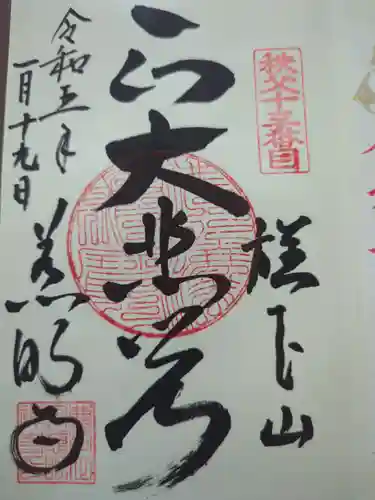 秩父十三番目
旗下山
正大悲閣
令和五年
一月十九日
慈眼寺